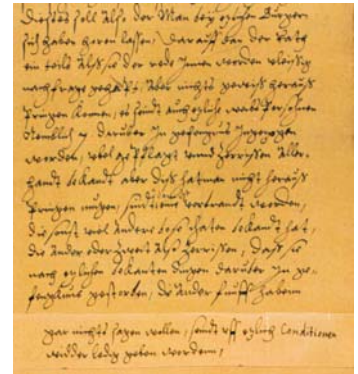 Dieses soll also der Man bey etzlichen Bürgern
sich haben hören lassen, darauff dan der Rath
ein teils also der rede Innen worden vleissig
nachfrage gehabt, Aber nichts gewiß heraus
bringen können, es seindt auch etzliche Persohnen
Nemblich 7 daruber In gefengnus Ingezogen
worden, wol geplagt unnd Zerrissen Aller-
handt bekandt aber diß hat man nicht heraus
bringen mögen, seindt verbrandt worden,
die sonst wol andere böse thaten bekandt hat,
die Ander oder Zweit also Zerrissen, daß sie
nach etzlichen bekanten dingen daruber In ge-
fengknus gestorben, die Ander funff haben
gar nichts sagen wollen, seindt uff etzlich Conditionen
widder ledig geben wordenn,